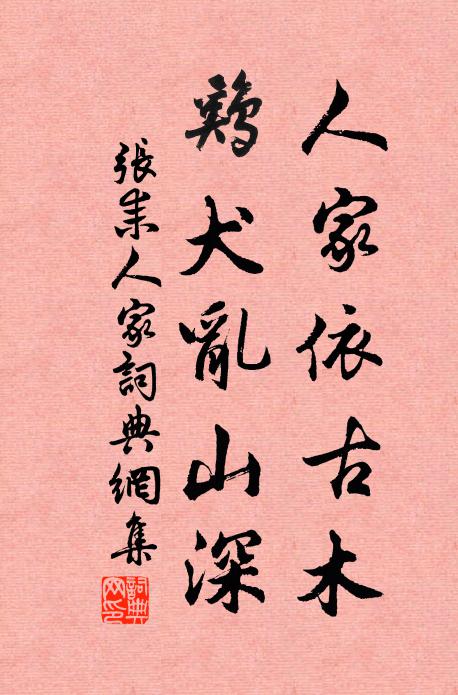 人家依古木
鷄犬亂山深
張耒人家詞典網集
詞典網印